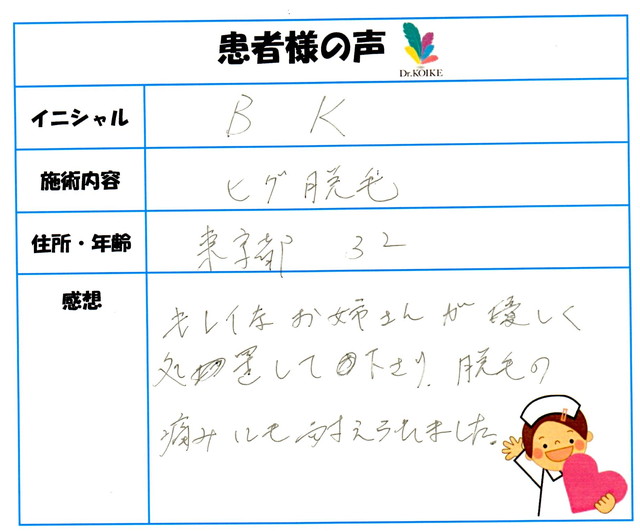 患者様の声
Dr.KOIKE
イニシャル B K
施術内容 ヒゲ脱毛
住所・年齢 東京都 32
感想
キレイな お姉さんが 優しく
処置して下さり、脱毛の
痛みにも耐えられました。